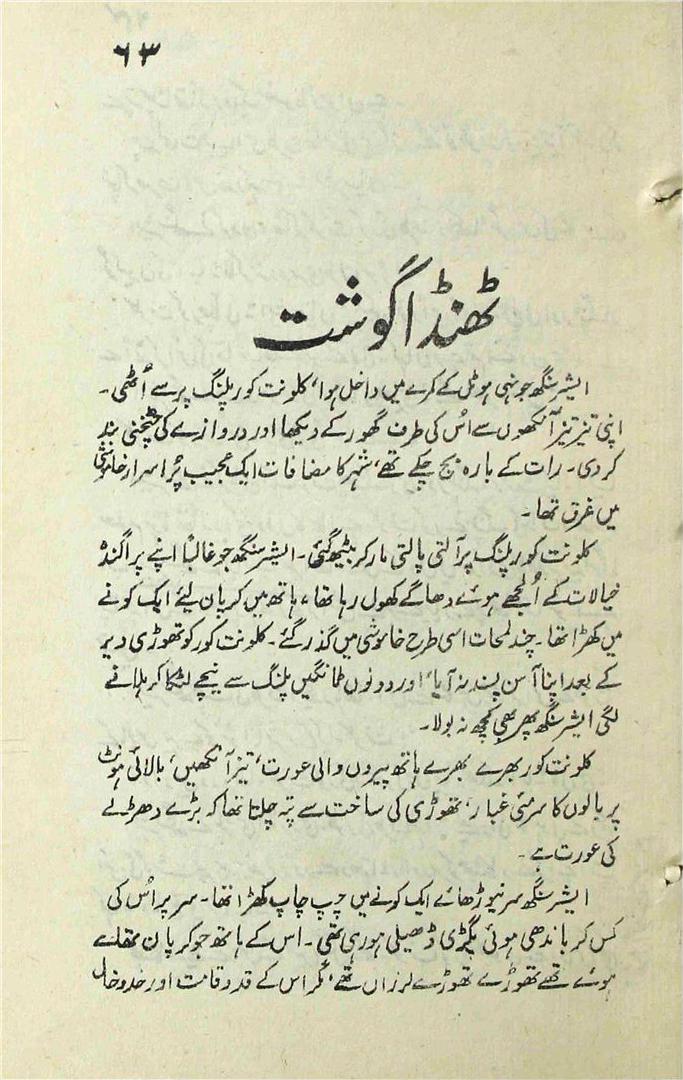 ۶۳
ٹھنڈا گوشت
ایشر سنگھ جونہی ہوٹل کے کمرے میں داخل ہوا، کلونت کور پلنگ پر سے اُٹھی۔
اپنی تیز تیز آنکھوں سے اُس کی طرف گھور کے دیکھا اور دروازے کی چٹخنی بند
کر دی۔ رات کے بارہ بج چکے تھے، شہر کا مضافات ایک عجیب پُر اسرار خاموشی
میں غرق تھا۔
کلونت کور پلنگ پر آلتی پالتی مار کر بیٹھ گئی۔ ایشر سنگھ جو غالباً اپنے پراگندہ
خیالات کے اُلجھے ہوئے دھاگے کھول رہا تھا، ہاتھ میں کرپان لیئے ایک کونے
میں کھڑا تھا۔ چند لمحات اسی طرح خاموشی میں گذر گئے۔ کلونت کور کو تھوڑی دیر
کے بعد اپنا آسن پسند نہ آیا، اور دونوں ٹانگیں پلنگ سے نیچے لٹکا کر ہلانے
لگی ایشر سنگھ پھر بھی کچھ نہ بولا۔
کلونت کور بھرے بھرے ہاتھ پیروں والی عورت، تیز آنکھیں، بالائی ہونٹ
پر بالوں کا سرمئی غبار، تھوڑی کی ساخت سے پتہ چلتا تھا کہ بڑے دھڑلے
کی عورت ہے۔
ایشر سنگھ سر نیوڑھائے ایک کونے میں چپ چاپ کھڑا تھا۔ سر پر اُس کی
کس کر باندھی ہوئی پگڑی ڈھیلی ہو رہی تھی۔ اس کے ہاتھ جو کرپان تھامے
ہوئے تھے تھوڑے تھوڑے لرزاں تھے، مگر اس کے قد و قامت اور خد و خال